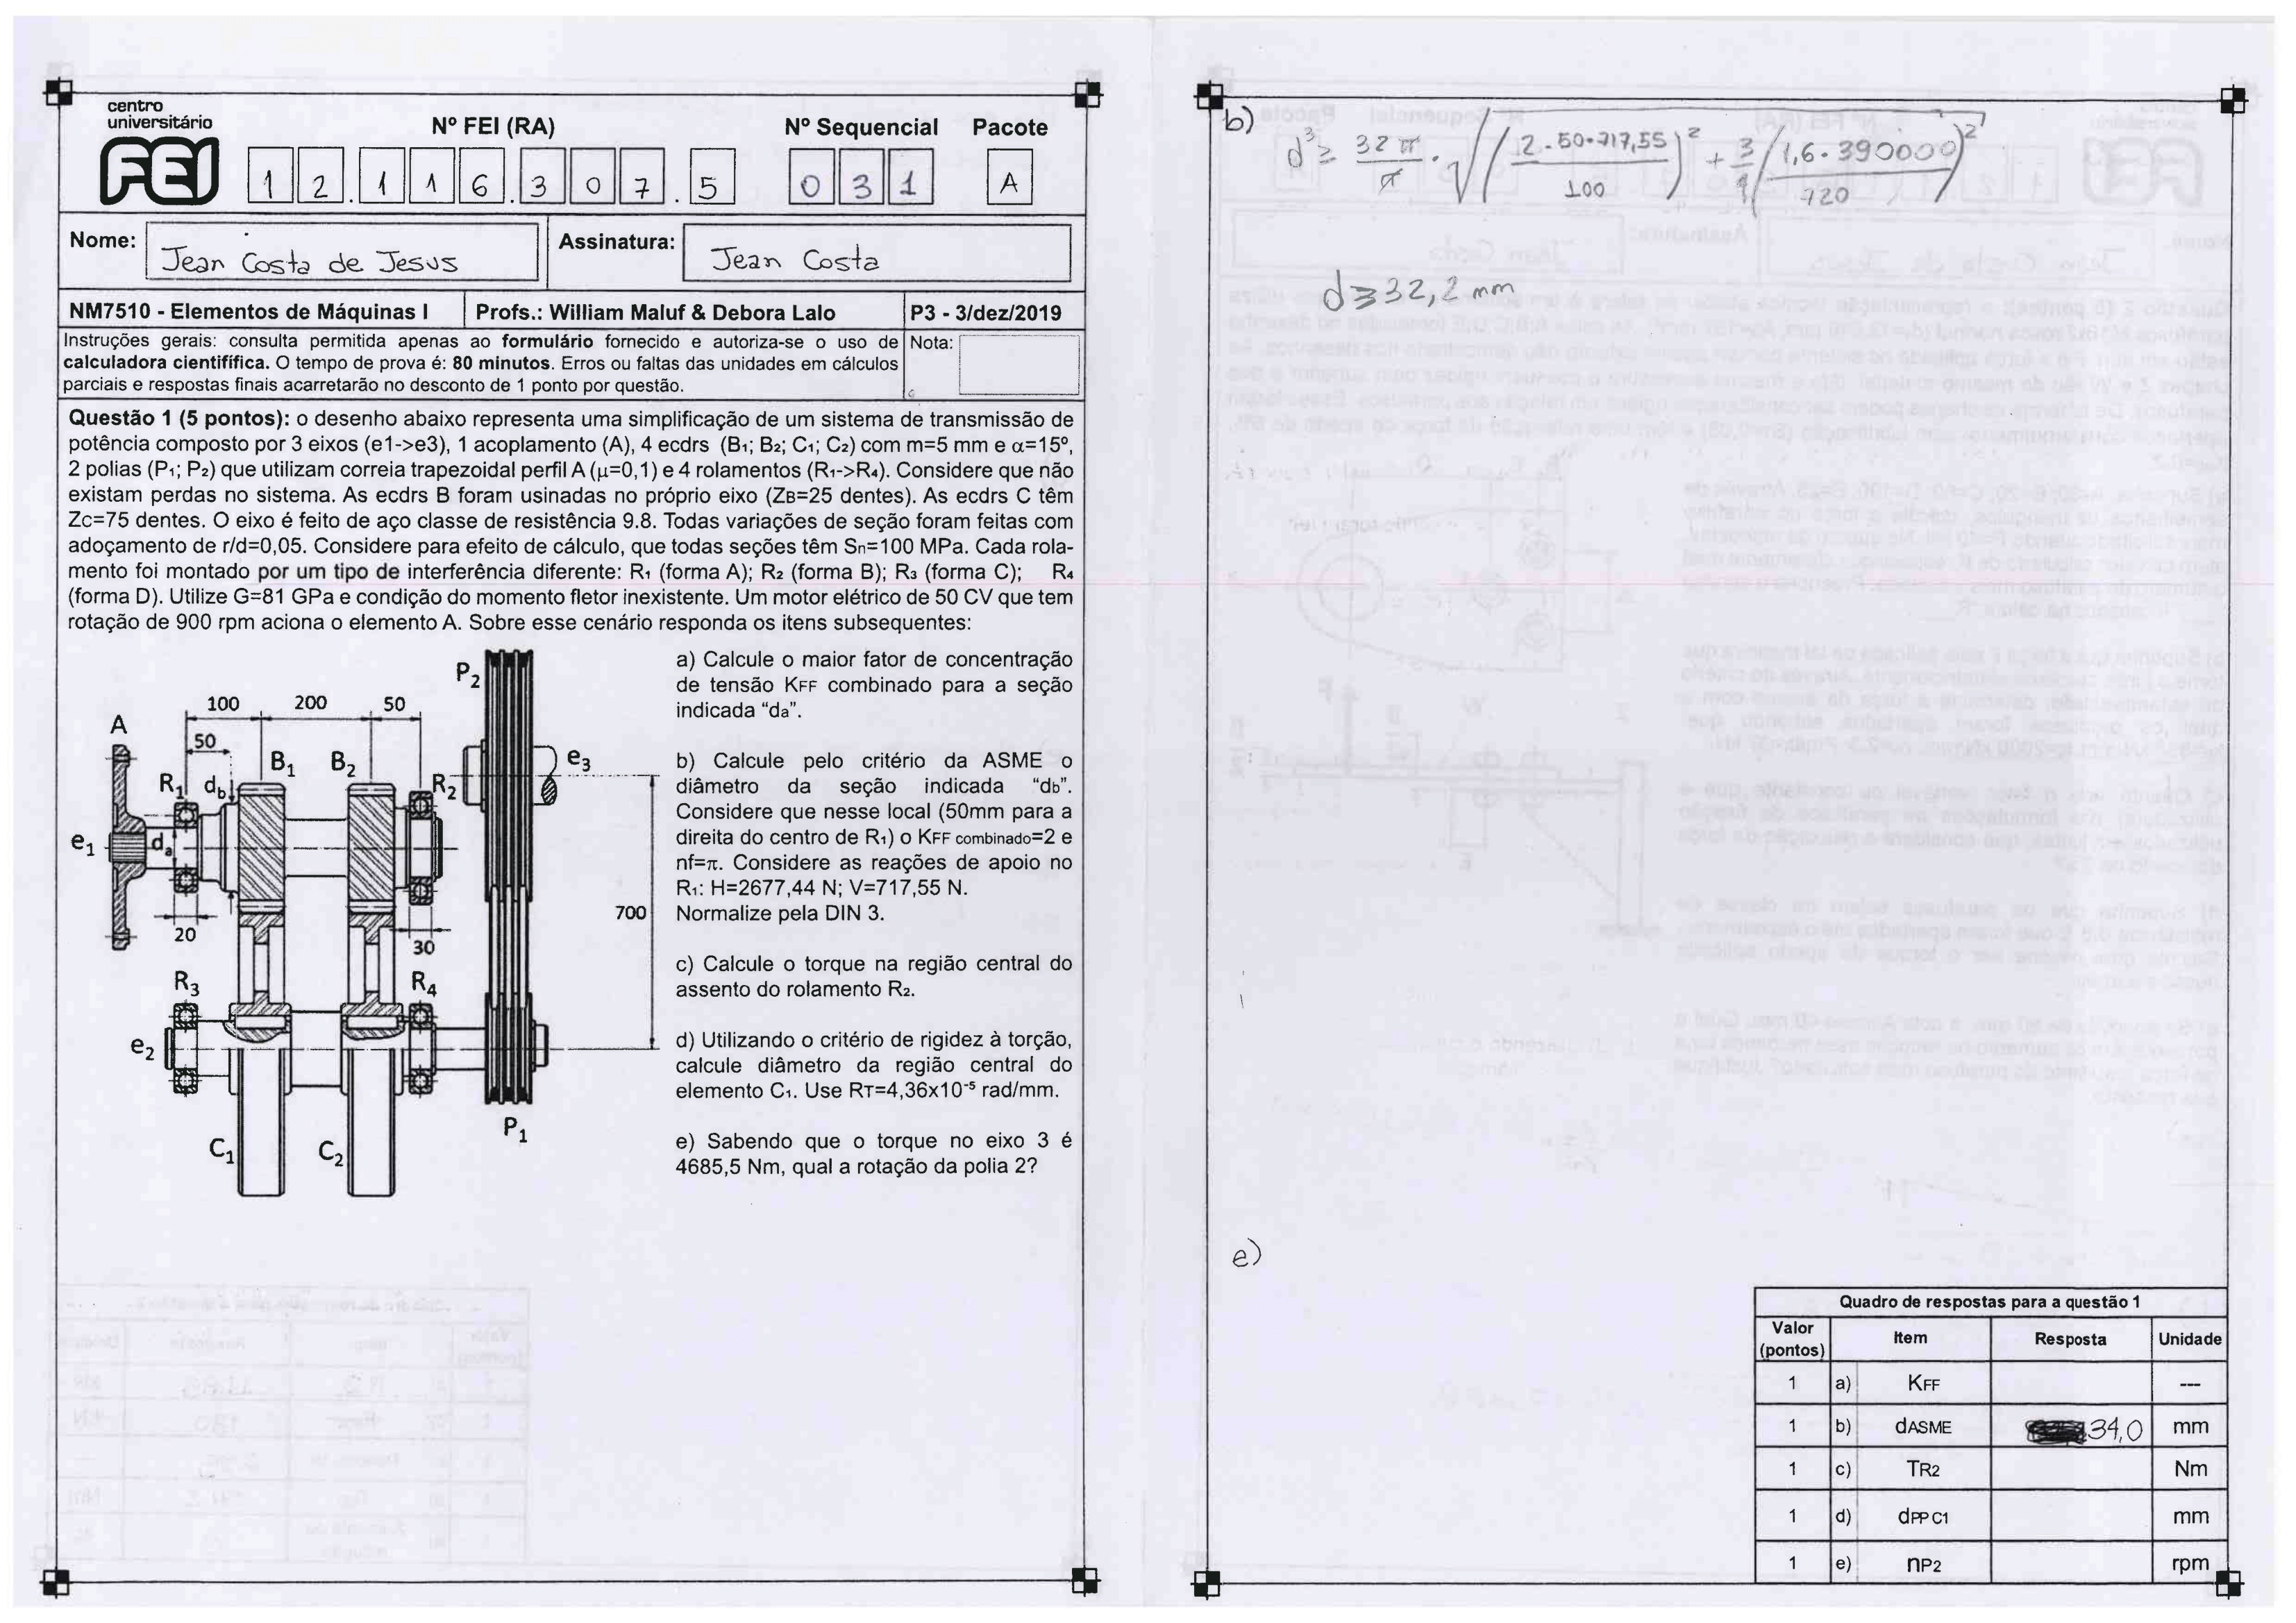 centro
universitário
FEI
Nº FEI (RA)
Nº Sequencial
Pacote
12.116.307.5
031
A
Nome:
Jean Costa de Jesus
Assinatura:
Jean Costa
NM7510 - Elementos de Máquinas I
Profs.: William Maluf & Debora Lalo
P3 - 3/dez/2019
Instruções gerais: consulta permitida apenas ao formulário fornecido e autoriza-se o uso de
calculadora cientifífica. O tempo de prova é: 80 minutos. Erros ou faltas das unidades em cálculos
parciais e respostas finais acarretarão no desconto de 1 ponto por questão.
Nota:
Questão 1 (5 pontos): o desenho abaixo representa uma simplificação de um sistema de transmissão de
potência composto por 3 eixos (e1->e3), 1 acoplamento (A), 4 ecdrs (B1; B2; C1; C2) com m=5 mm e α=15º,
2 polias (P1; P2) que utilizam correia trapezoidal perfil A (µ=0,1) e 4 rolamentos (R1->R4). Considere que não
existam perdas no sistema. As ecdrs B foram usinadas no próprio eixo (ZB=25 dentes). As ecdrs C têm
Zc=75 dentes. O eixo é feito de aço classe de resistência 9.8. Todas variações de seção foram feitas com
adoçamento de r/d=0,05. Considere para efeito de cálculo, que todas seções têm Sn=100 MPa. Cada rola-
mento foi montado por um tipo de interferência diferente: R1 (forma A); R2 (forma B); R3 (forma C); R4
(forma D). Utilize G=81 GPa e condição do momento fletor inexistente. Um motor elétrico de 50 CV que tem
rotação de 900 rpm aciona o elemento A. Sobre esse cenário responda os itens subsequentes:
P2
100 200 50
A
50
B1 B2
e3
R1 db
R2
e1
da
20
30
700
R3
R4
e2
C1
C2
P1
a) Calcule o maior fator de concentração
de tensão KFF combinado para a seção
indicada “da”.
b) Calcule pelo critério da ASME o
diâmetro da seção indicada “db”.
Considere que nesse local (50mm para a
direita do centro de R1) o KFF combinado=2 e
nf=π. Considere as reações de apoio no
R1: H=2677,44 N; V=717,55 N.
Normalize pela DIN 3.
c) Calcule o torque na região central do
assento do rolamento R2.
d) Utilizando o critério de rigidez à torção,
calcule diâmetro da região central do
elemento C1. Use RT=4,36x10⁻⁵ rad/mm.
e) Sabendo que o torque no eixo 3 é
4685,5 Nm, qual a rotação da polia 2?
b)
d³ ≥ 32 π/π · √((2·50·717,55/100)² + 3/4 (1,6·390000/720)²)
d ≥ 32,2 mm
e)
Quadro de respostas para a questão 1
Valor (pontos) Item Resposta Unidade
1 a) KFF ---
1 b) dASME 34,0 mm
1 c) TR2 Nm
1 d) dPP C1 mm
1 e) nP2 rpm